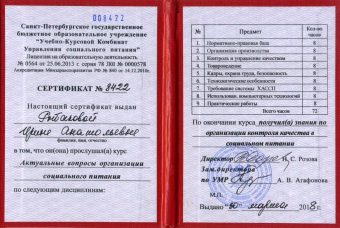 008422
Санкт-Петербургское государственное
бюджетное образовательное учреждение
"Учебно-Курсовой Комбинат
Управления социального питания"
Лицензия на образовательную деятельность
№ 0564 от 25.06.2013 г. серия 78 Л01 № 0000578
СЕРТИФИКАТ № 8422
Настоящий сертификат выдан
Ирине Анатольевне
фамилия, имя, отчество
в том, что он(она) прослушал(а) курс
Актуальные вопросы организации
социального питания
по следующим дисциплинам:
№ Предмет Кол-во часов
1 Нормативно-правовая база 8
2 Организация производства 8
3 Контроль и управление качеством 8
4 Товароведение 8
5 Кадры, охрана труда, безопасность 8
6 Гигиенические особенности 8
7 Требование системы ХАССП 8
8 Использование, компьютерных технологий 8
9 Практические работы 8
Всего часов 72
По окончании курса, получил(а) знания по
организации контроля качества в
социальном питании
Директор Н. С. Розова
Зам.директора
по УМР А. В. Агафонова
М.П.
Выдано марта 2018 г.